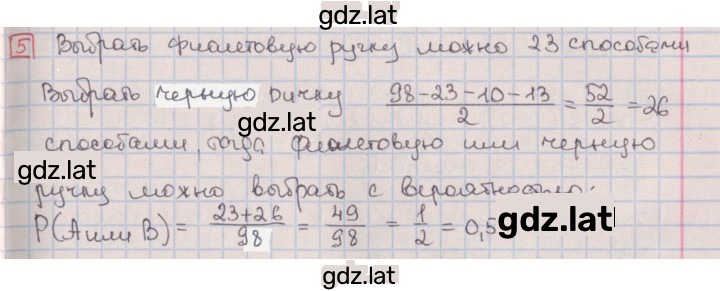 gdz.lat
5 Выбрать фиолетовую ручку можно 23 способами
Выбрать черную ручку (98-23-10-13)/2 = 52/2 = 26
gdz.lat
способами, тогда фиолетовую или черную
gdz.lat
gdz.lat
ручку можно выбрать с вероятностью:
P(A или B) = (23+26)/98 = 49/98 = 1/2 = 0,5
gdz.lat
gdz.lat